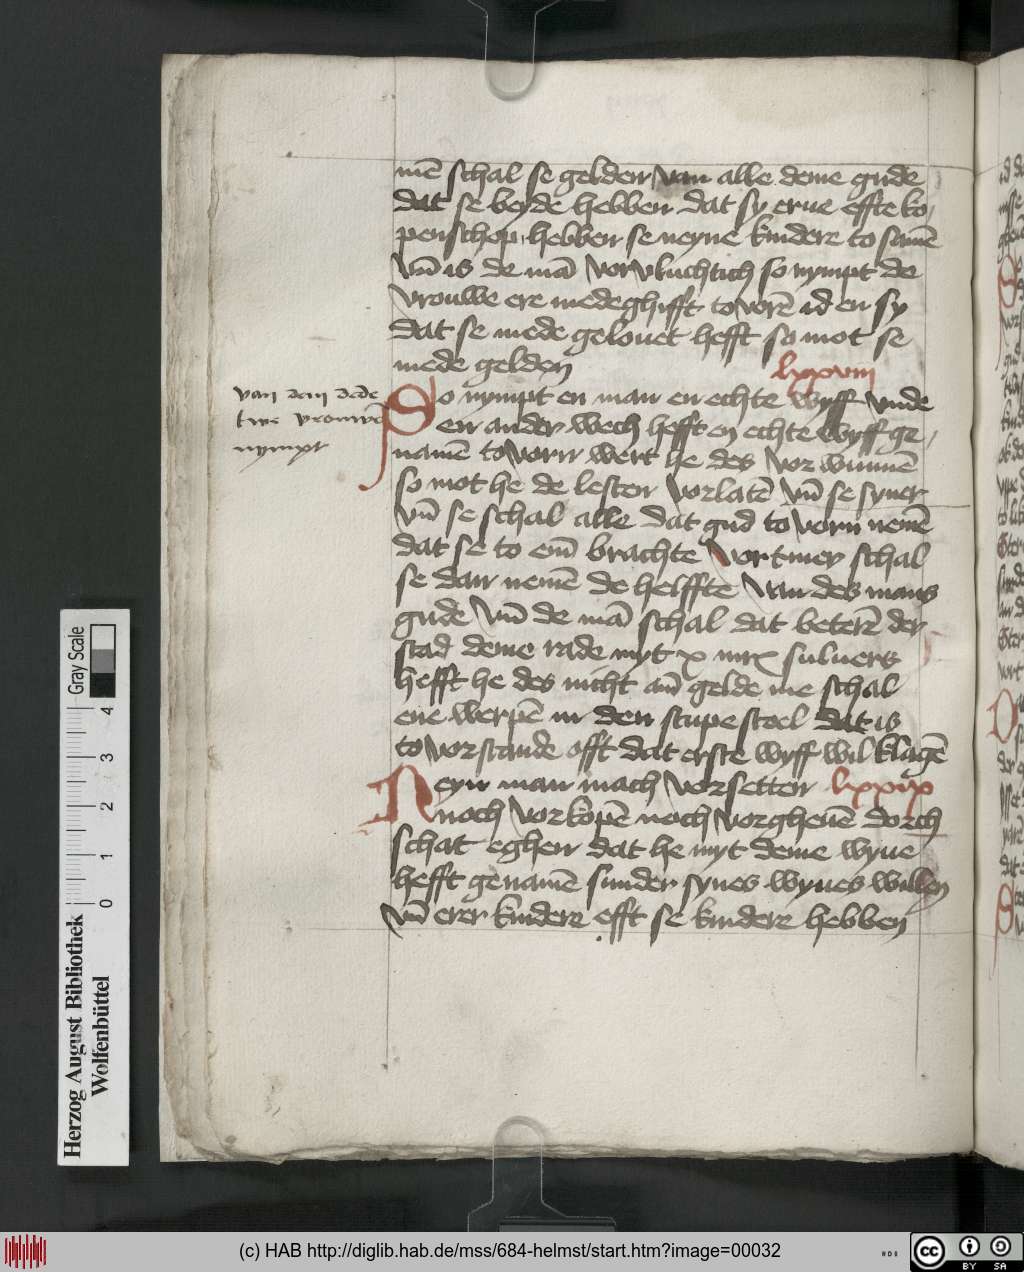 mē schal se gelden van alle deme gude
dat se beyde hebben dat sy erue effte ko/
penschop hebben se neyne kindere to samē
vn̄ is de mā vorvluchtich so nympt de
vrouwe ere medeghifft to vorē id en sy
dat se mede gelouet hefft so mot se
mede gelden
lxxviii
van dem dede
twe vrouwē
nympt
So nympt en man en echte wyff vnde
en ander wech hefft en echte wyff ge/
namē to vorn wert he des vor wunnē
so mot he de lesten vorlatē vn̄ se syner
vn̄ se schal alle dat gud to vorn nemē
dat se to em̄ brachte vortmer schal
se dan nemē de helffte van des mans
gude vn̄ de mā schal dat beterē der
stad deme rade myt x mrc suluers
hefft he des nicht an̄ gelde me schal
ene werpē in den stupestoel dat is
to vorstande offt dat erste wyff wil klagē
Neyn man mach vorsetten lxxix
noch vorkopē noch vorgheuē dorch
schat eghen dat he myt deme wyue
hefft genamē sunder synes wyues willen
vn̄ erer kindere efft se kindere hebben
Herzog August Bibliothek
Wolfenbüttel
0 1 2 3 4
Gray Scale
(c) HAB http://diglib.hab.de/mss/684-helmst/start.htm?image=00032
cc
BY SA